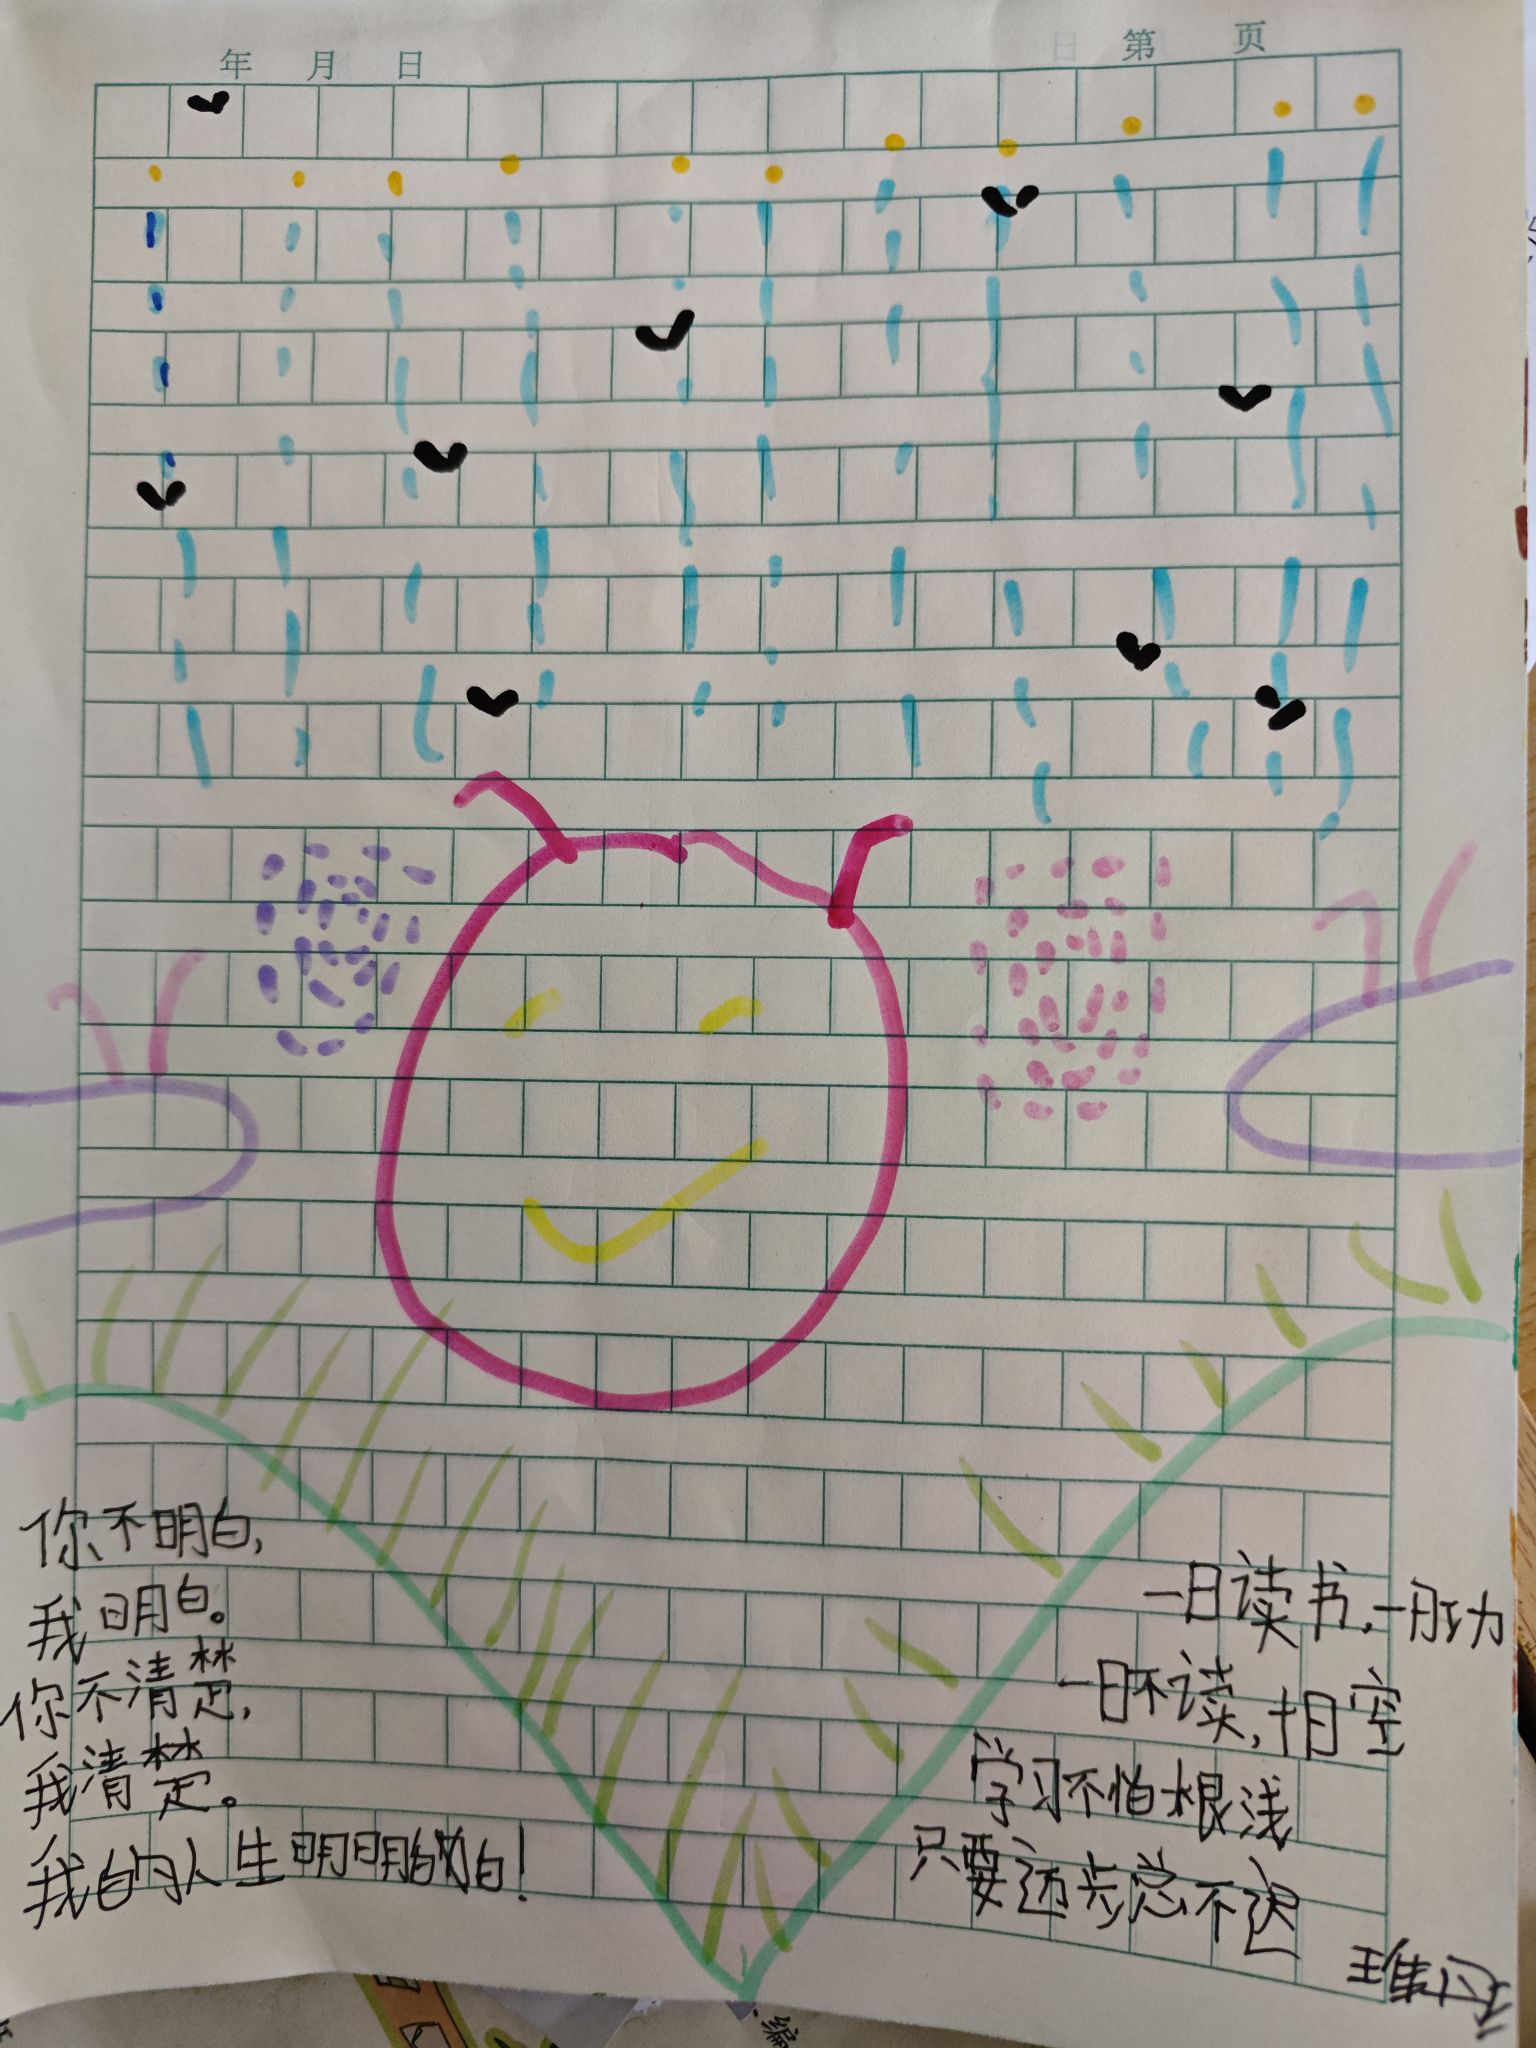 年 月 日 第 页
你不明白,
我明白。
你不清楚,
我清楚。
我的人生明明白白!
一日读书,一日功
一日不读,十日空
学习不怕根浅
只要迈步总不迟